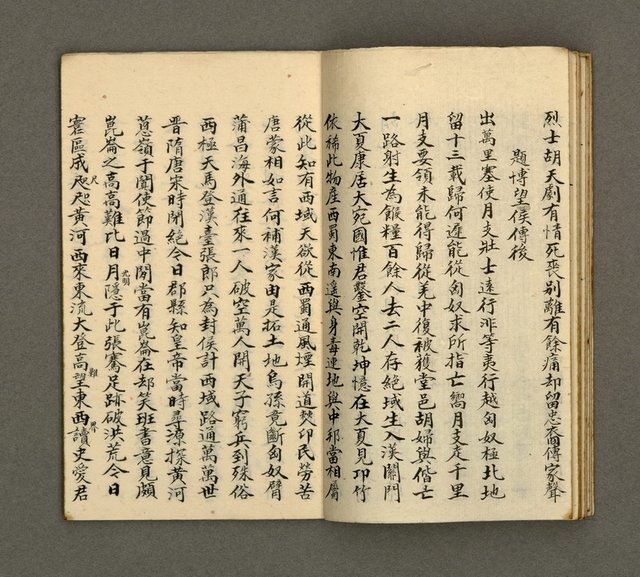 烈士胡天劇有情死喪别離有餘痛却留忠裔傳家聲
題博望侯傳後
出萬里塞使月支壯士遠行非等夷行越匈奴極北地
留十三載歸何遲能從匈奴求所指亡嚮月支走千里
月支要領未能得歸從羌中復被獲堂邑胡婦與偕亡
一路射生為餱糧百餘人去二人存絕域生入漢關門
大夏康居大宛國惟君鑿空開乾坤憶在大夏見邛竹
依稀此物産西蜀東南遥與身毒連地與中邦當相屬
從此知有西域天欲從西蜀通風煙開道僰邛民勞苦
唐蒙相如言何補漢家由是拓土地烏孫竟斷匈奴臂
蒲昌海外通往來一人破空萬人開天子窮兵到殊俗
西極天馬登漢臺張郎只為封侯計西域路通萬萬世
晉隋唐宋時閉絕今日郡縣知皇帝當時尋源探黄河
蔥嶺于闐使節過中閒當有崑崙在却笑班書意見頗
崑崙之高高難比日月隱于此張騫足跡破洪荒今日
光明
寰區成咫咫黄河西來東流大登高望東西讀史愛君
尺
難